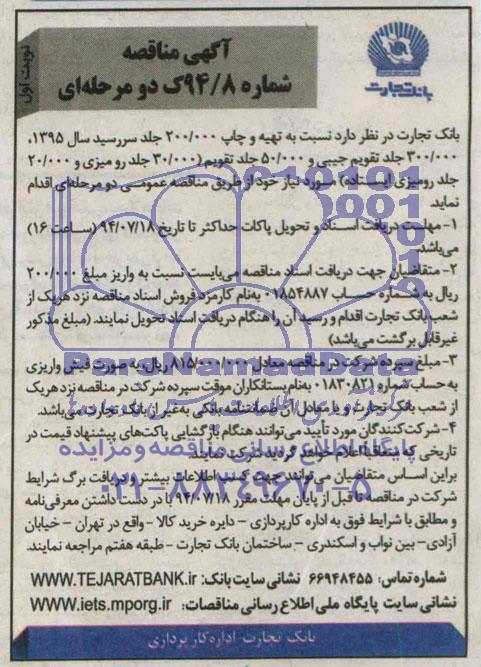 نوبت اول
آگهی مناقصه
شماره ۹۴/۸ک دو مرحله‌ای
بانک تجارت
بانک تجارت در نظر دارد نسبت به تهیه و چاپ ۲۰۰/۰۰۰ جلد سررسید سال ۱۳۹۵،
۳۰۰/۰۰۰ جلد تقویم جیبی و ۵۰/۰۰۰ جلد تقویم (۳۰/۰۰۰ جلد رو میزی و ۲۰/۰۰۰
جلد رومیزی ایستاده) مورد نیاز خود از طریق مناقصه عمومی دو مرحله‌ای اقدام
نماید.
۱- مهلت دریافت اسناد و تحویل پاکات حداکثر تا تاریخ ۹۴/۰۷/۱۸ (ساعت ۱۶)
می‌باشد.
۲- متقاضیان جهت دریافت اسناد مناقصه می‌بایست نسبت به واریز مبلغ ۲۰۰/۰۰۰
ریال به شماره حساب ۰۱۸۵۴۸۸۷ به‌نام کارمزد فروش اسناد مناقصه نزد هریک از
شعب بانک تجارت اقدام و رسید آن را هنگام دریافت اسناد تحویل نمایند. (مبلغ مذکور
غیرقابل برگشت می‌باشد)
۳- مبلغ سپرده شرکت در مناقصه معادل ۸۱۵/۰۰۰/۰۰۰ ریال، به صورت فیش واریزی
به حساب شماره ۰۱۸۳۰۸۲۱ به‌نام بستانکاران موقت سپرده شرکت در مناقصه نزد هریک
از شعب بانک تجارت و یا معادل آن ضمانتنامه بانکی به‌غیر از بانک تجارت می‌باشد.
۴- شرکت‌کنندگان مورد تأیید می‌توانند هنگام بازگشایی پاکت‌های پیشنهاد قیمت در
تاریخی که متعاقباً اعلام خواهد گردید شرکت نمایند.
براین اساس متقاضیان می‌توانند جهت کسب اطلاعات بیشتر و دریافت برگ شرایط
شرکت در مناقصه تا قبل از پایان مهلت مقرر ۹۴/۰۷/۱۸ با در دست داشتن معرفی‌نامه
و مطابق با شرایط فوق به اداره کارپردازی - دایره خرید کالا - واقع در تهران - خیابان
آزادی- بین نواب و اسکندری - ساختمان بانک تجارت - طبقه هفتم مراجعه نمایند.
شماره تماس: ۶۶۹۴۸۴۵۵ نشانی سایت بانک: WWW.TEJARATBANK.ir
نشانی سایت پایگاه ملی اطلاع رسانی مناقصات: WWW.iets.mporg.ir
بانک تجارت اداره کارپردازی
ParsNamadData
پایگاه اطلاع رسانی مناقصه و مزایده
۰۲۱-۸۸۳۴۹۶۷۰-۵